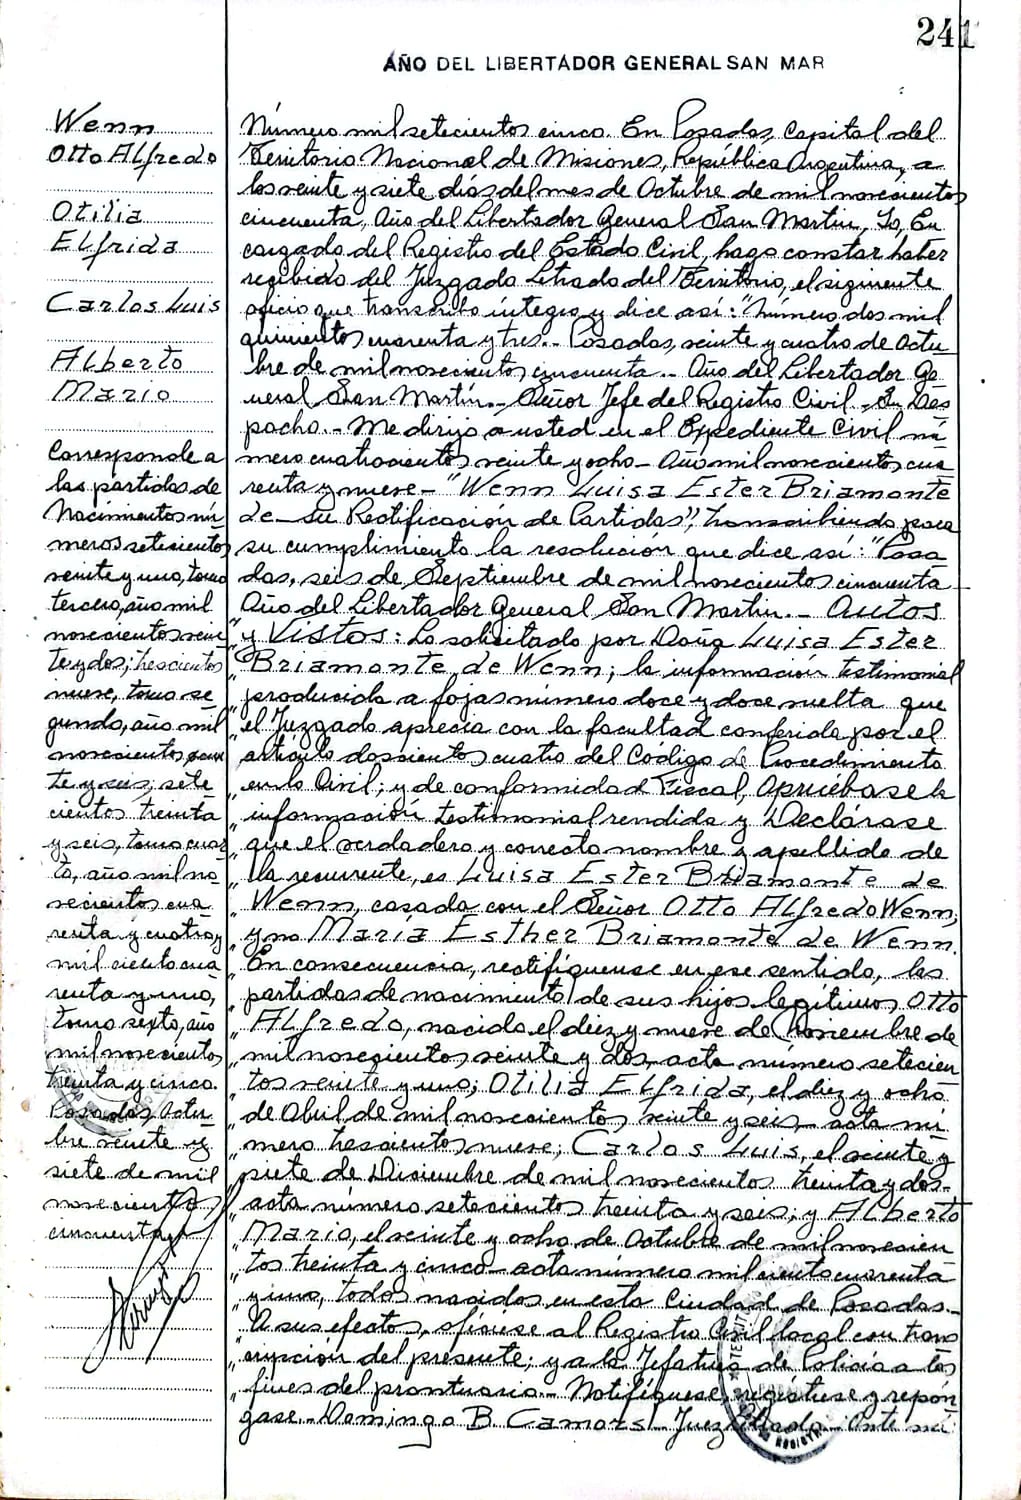 241
AÑO DEL LIBERTADOR GENERAL SAN MAR
Wenn
Otto Alfredo
Otilia
Elfrida
Carlos Luis
Alberto
Mario
Corresponde a
las partidas de
Nacimientos nú
meros setecientos
veinte y uno, tomo
tercero, año mil
novecientos vein
te y dos; trescientos
nueve, tomo se
gundo, año mil
novecientos vein
te y seis; sete
cientos treinta
y seis, tomo cuar
to, año mil no
vecientos cua
renta y cuatro y
mil ciento cua
renta y uno,
tomo sexto, año
mil novecientos
treinta y cinco.
Posadas, Octu
bre veinte y
siete de mil
novecientos
cincuenta
Número mil setecientos cinco. En Posadas, Capital del
Territorio Nacional de Misiones, República Argentina, a
los veinte y siete días del mes de Octubre de mil novecientos
cincuenta, Año del Libertador General San Martin, Yo, En
cargado del Registro del Estado Civil, hago constar haber
recibido del Juzgado Letrado del Territorio, el siguiente
oficio que transcribo íntegro y dice así: "Número dos mil
quinientos cuarenta y tres.- Posadas, veinte y cuatro de Octu
bre de mil novecientos cincuenta.- Año del Libertador Ge
neral San Martín.- Señor Jefe del Registro Civil.- Su Des
pacho.- Me dirijo a usted en el Expediente Civil nú
mero cuatrocientos veinte y ocho- Año mil novecientos cua
renta y nueve- "Wenn Luisa Ester Briamonte
de- su Rectificación de Partidas", transcribiendo para
su cumplimiento la resolución que dice así: "Posa
das, seis de Septiembre de mil novecientos cincuenta
Año del Libertador General San Martin.- Autos
" y Vistos: Lo solicitado por Doña Luisa Ester
" Briamonte de Wenn; la información testimonial
" producida a fojas número doce y doce vuelta que
" el Juzgado aprecia con la facultad conferida por el
" artículo doscientos cuatro del Código de Procedimiento
" en lo Civil; y de conformidad Fiscal, Apruébase la
" información testimonial rendida y Declárase
" que el verdadero y correcto nombre y apellido de
" la recurrente, es Luisa Ester Briamonte de
" Wenn, casada con el Señor Otto Alfredo Wenn,
" y no María Esther Briamonte de Wenn.
" En consecuencia, rectifíquense en ese sentido, las
" partidas de nacimiento de sus hijos legítimos Otto
" Alfredo, nacido el diez y nueve de Noviembre de
" mil novecientos veinte y dos, acta número setecien
" tos veinte y uno; Otilia Elfrida, el diez y ocho
" de Abril de mil novecientos veinte y seis- acta nú
" mero trescientos nueve; Carlos Luis, el veinte y
" siete de Diciembre de mil novecientos treinta y dos-
" acta número setecientos treinta y seis; y Alberto
" Mario, el veinte y ocho de Octubre de mil novecien
" tos treinta y cinco- acta número mil ciento cuarenta
" y uno, todos nacidos en esta Ciudad de Posadas.-
" A sus efectos, ofíciese al Registro Civil local con trans
" cripción del presente; y a la Jefatura de Policía a los
" fines del prontuario.- Notifíquese, regístrese y repón
gase.- Domingo B. Camors. Juez Letrado.- Ante mí: